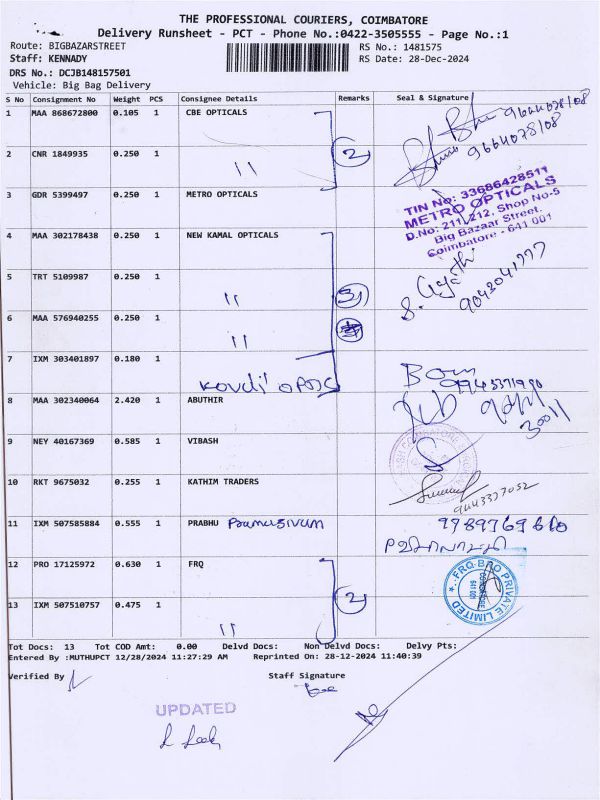 THE PROFESSIONAL COURIERS, COIMBATORE
Delivery Runsheet - PCT - Phone No.:0422-3505555 - Page No.:1
Route: BIGBAZARSTREET RS No.: 1481575
Staff: KENNADY RS Date: 28-Dec-2024
DRS No.: DCJB148157501
Vehicle: Big Bag Delivery
S No Consignment No Weight PCS Consignee Details Remarks Seal & Signature
1 MAA 868672800 0.105 1 CBE OPTICALS 9664078108
9664078108
2 CNR 1849935 0.250 1 " 2
3 GDR 5399497 0.250 1 METRO OPTICALS
TIN No: 33686428511
METRO OPTICALS
D.No: 211, 212, Shop No-5
Big Bazaar Street,
Coimbatore - 641 001
4 MAA 302178438 0.250 1 NEW KAMAL OPTICALS
5 TRT 5109987 0.250 1 " 3 9043041777
6 MAA 576940255 0.250 1 "
7 IXM 303401897 0.180 1
8 MAA 302340064 2.420 1 ABUTHIR
9 NEY 40167369 0.585 1 VIBASH
10 RKT 9675032 0.255 1 KATHIM TRADERS 9443377052
11 IXM 507585884 0.555 1 PRABHU 9789769660
12 PRO 17125972 0.630 1 FRQ
13 IXM 507510757 0.475 1 " 2
FRQ BRO PRIVATE LIMITED
COIMBATORE
641 001
Tot Docs: 13 Tot COD Amt: 0.00 Delvd Docs: Non Delvd Docs: Delvy Pts:
Entered By :MUTHUPCT 12/28/2024 11:27:29 AM Reprinted On: 28-12-2024 11:40:39
Verified By Staff Signature
UPDATED